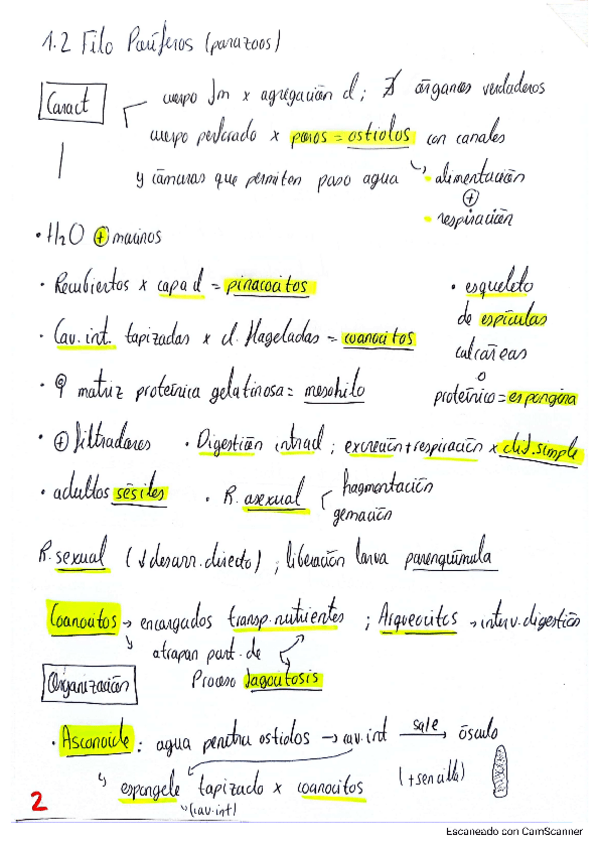 1.2 Filo Poríferos (parazoos)
Caract
cuerpo fm x agregación cl; ∄ órganos verdaderos
cuerpo perforado x poros = ostiolos con canales
y cámaras que permiten paso agua
alimentación
⊕
respiración
• H2O ⊕ marinos
• Recubiertos x capa cl = pinacocitos
• esqueleto
de espículas
calcáreas
o
proteínico = espongina
• Cav. int. tapizadas x cl. flageladas = coanocitos
• matriz proteínica gelatinosa = mesohilo
• ⊕ filtradores
• Digestión intracl; excreción + respiración x dif. simple
• adultos sésiles
• R. asexual
fragmentación
gemación
R. sexual (↓ desarr. directo); liberación larva parenquímula
Coanocitos → encargados transp. nutrientes; Arqueocitos → interv. digestión
atrapan part. de
Proceso fagocitosis
Organización
• Asconoide: agua penetra ostiolos → cav. int sale → ósculo
espongocele tapizado x coanocitos
(+ sencilla)
(cav. int)
2
Escaneado con CamScanner